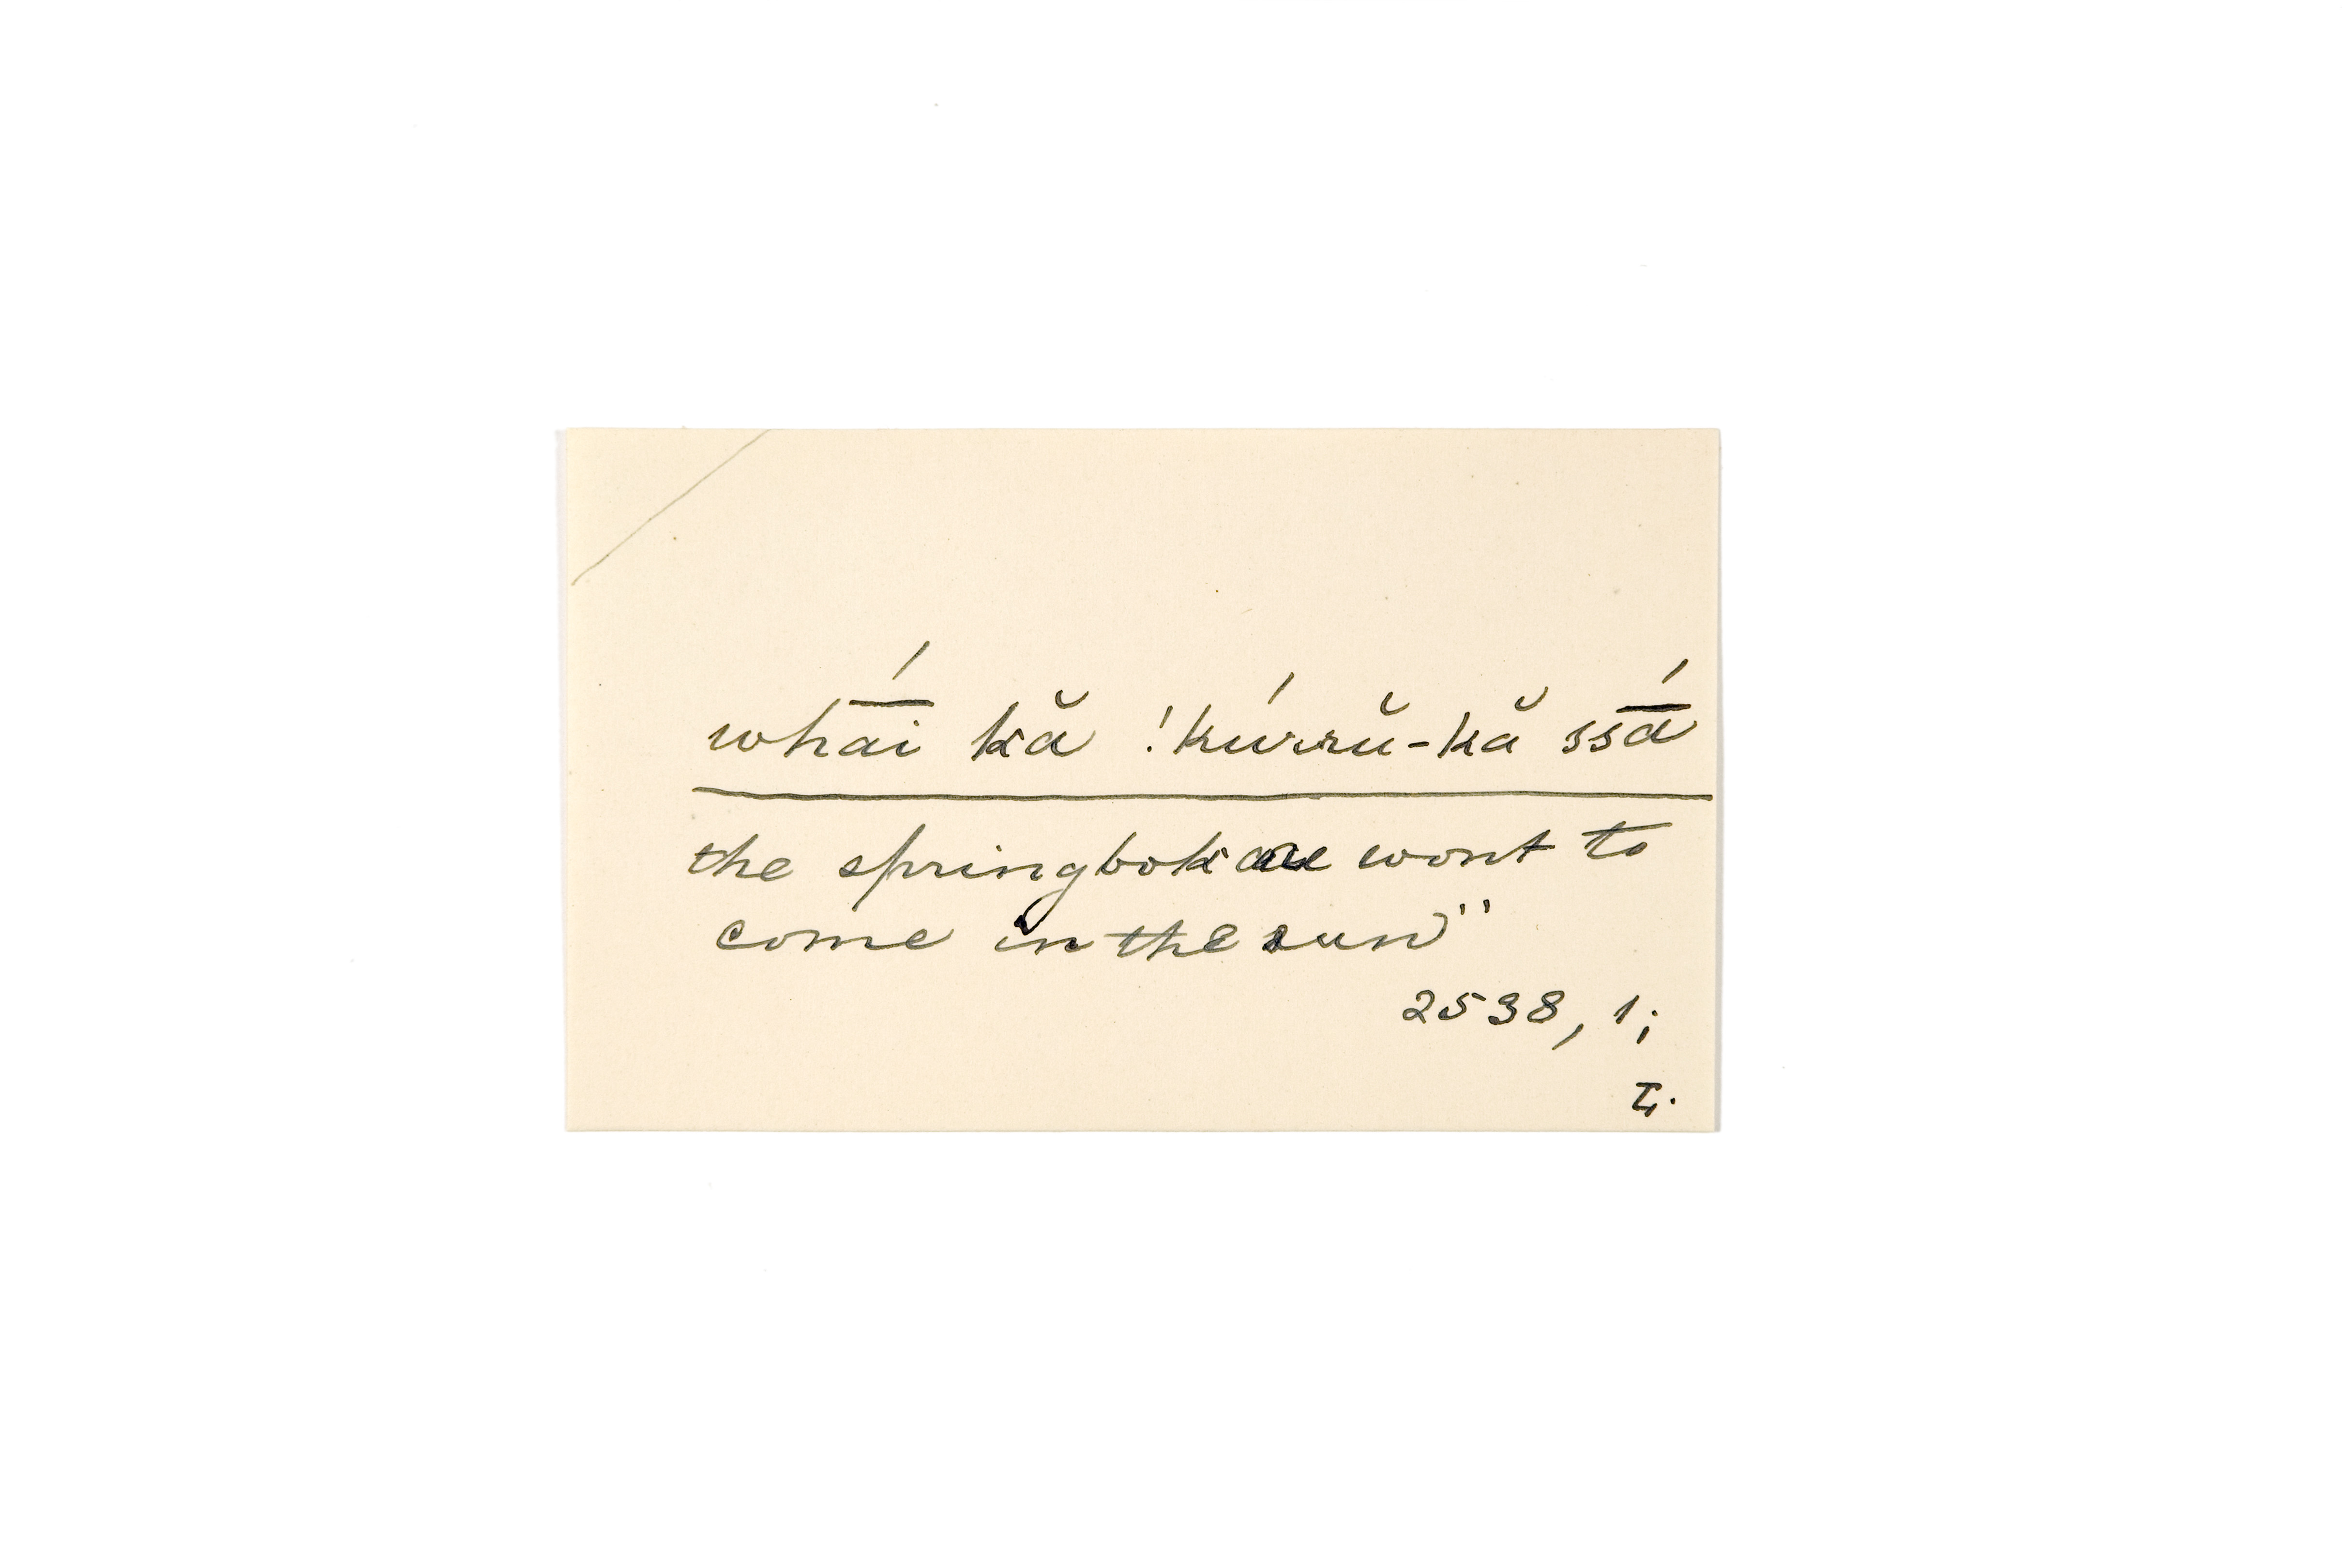 whā́i kă !kúrrŭ-kă ssā́
the springbok are wont to
come in the sun"
2538, 1;
L.